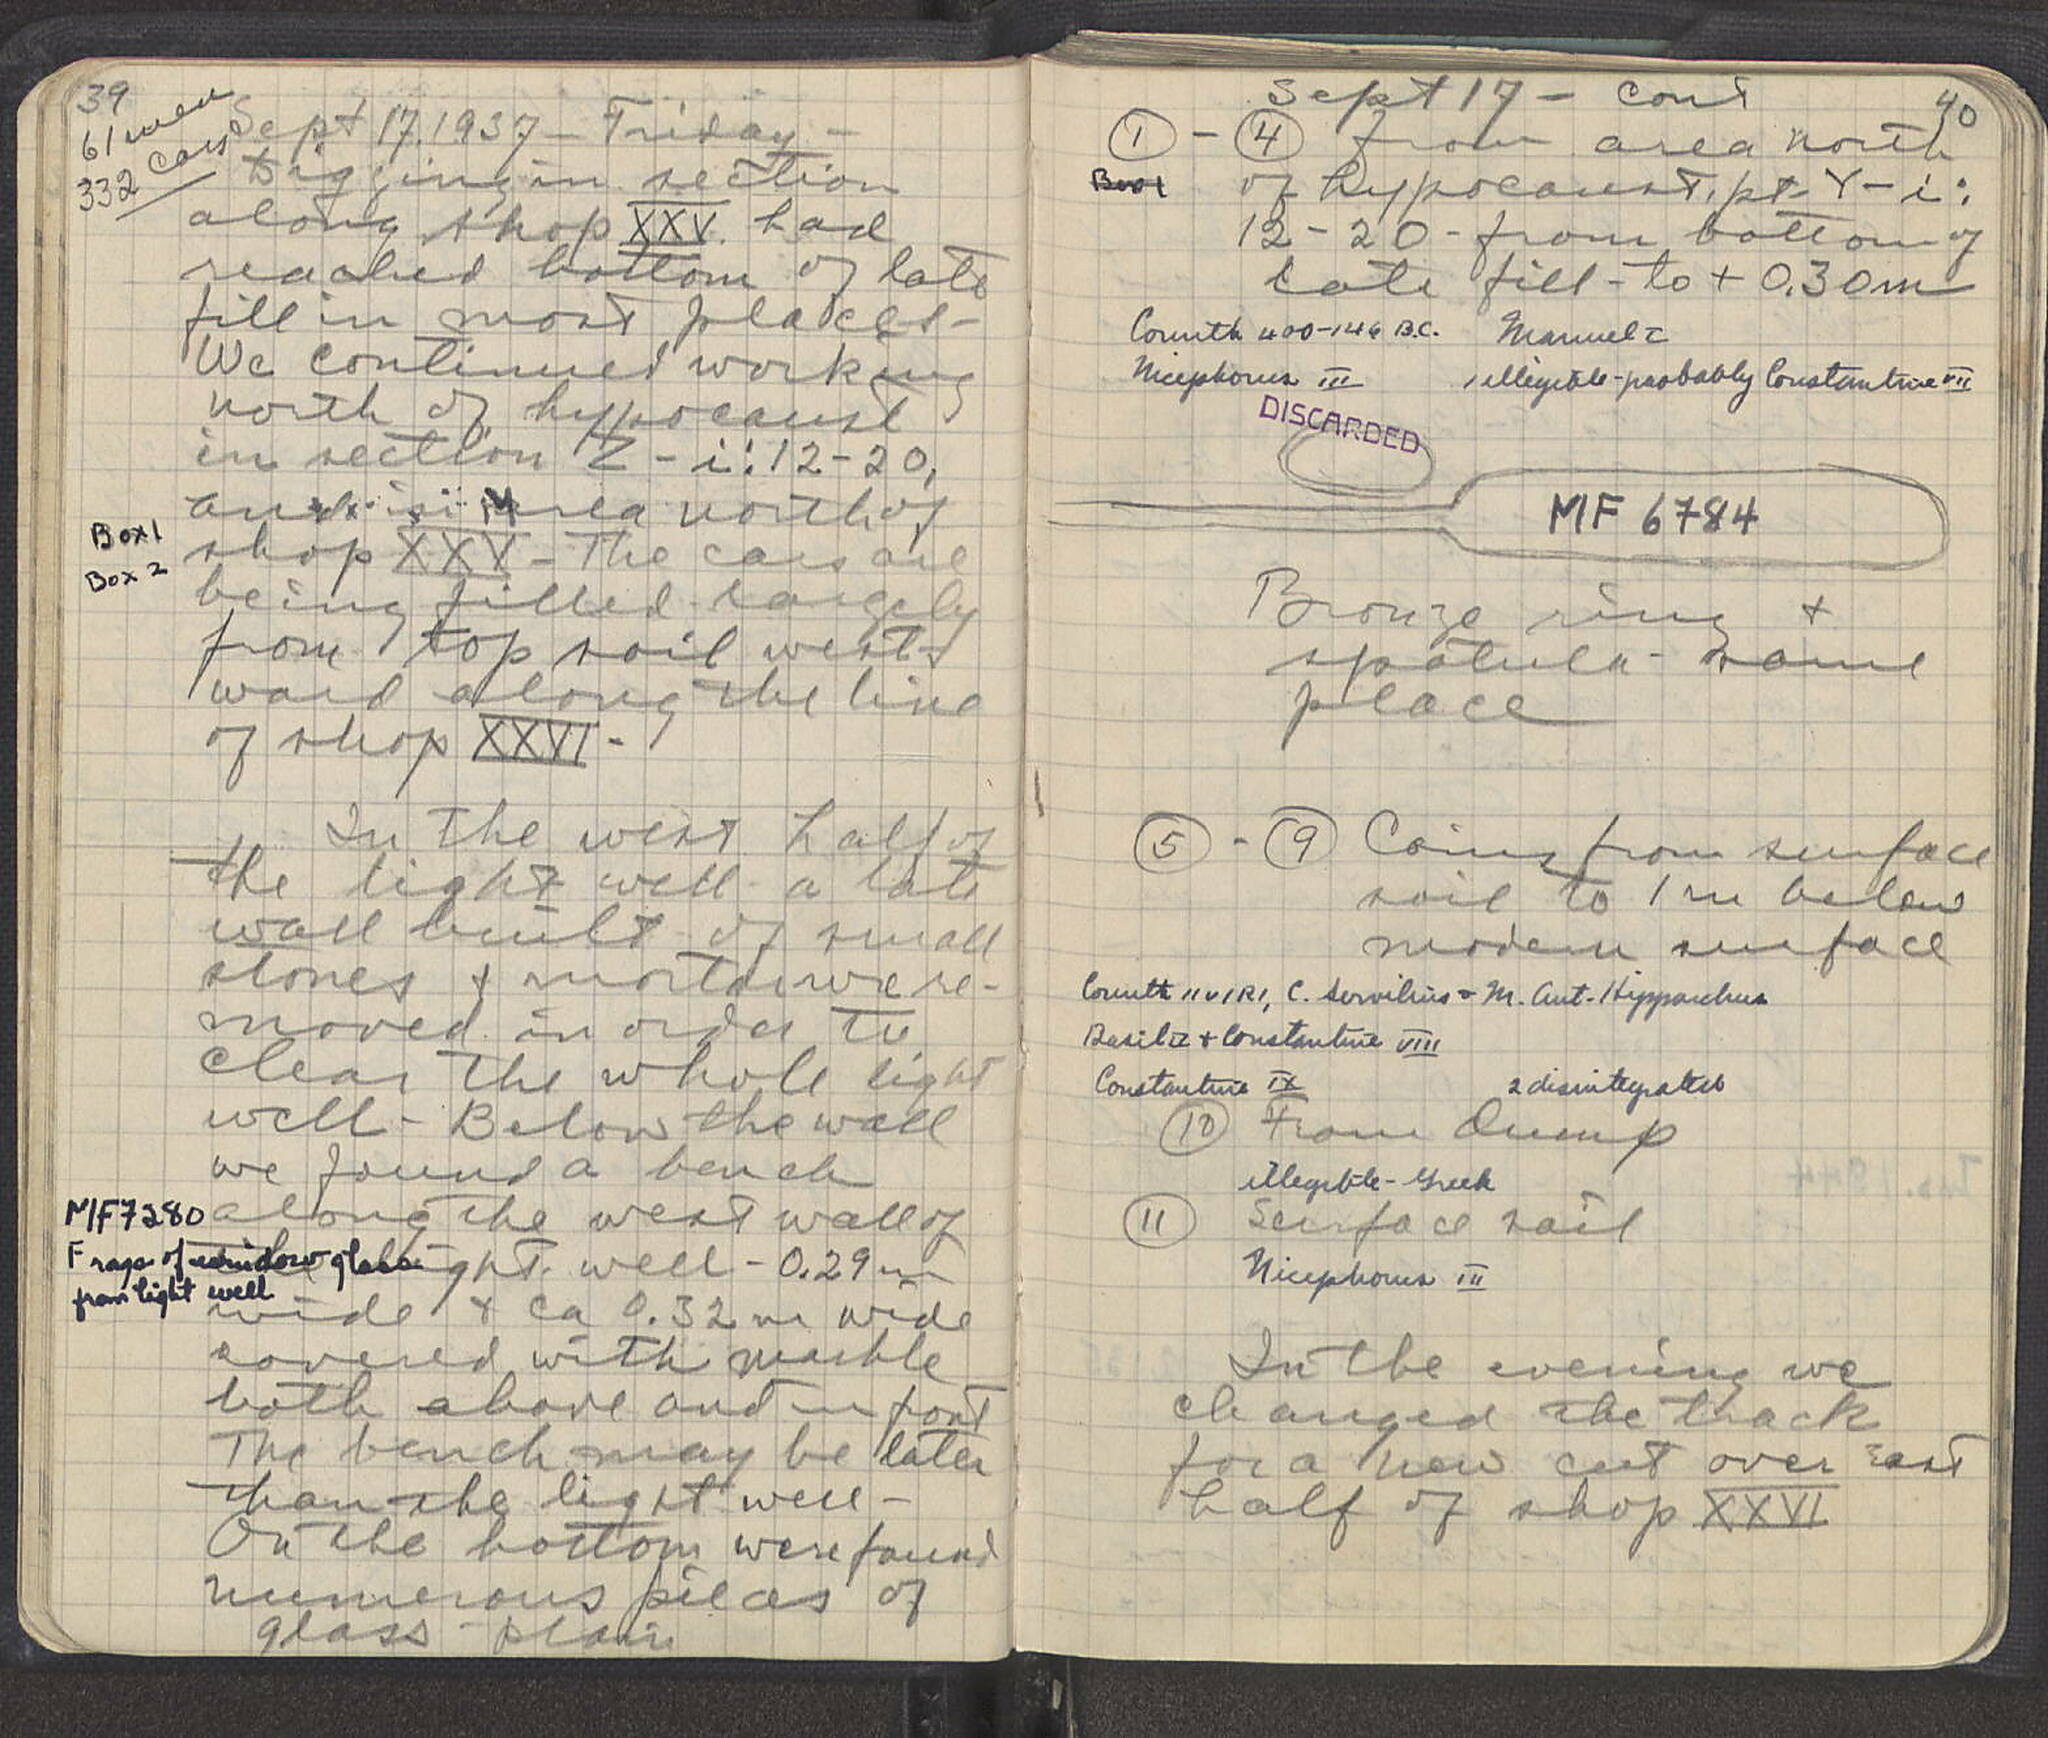 39
61 men
332 cars
Sept 17. 1937 - Friday -
Digging in section
along shop XXV had
reached bottom of late
fill in most places -
We continued working
north of hypocaust
in section Z - i: 12-20,
area north of
Box 1
shop XXV - The cars are
Box 2
being filled largely
from top soil west-
ward along the line
of shop XXVI -
In the west half of
the light well a late
wall built of small
stones & mortar were re-
moved in order to
clear the whole light
well - Below the wall
we found a bench
MF 7280
along the west wall of
Frags of window glass
from light well
the light well - 0.29 m
wide & ca 0.32 m wide
covered with marble
both above and in front
The bench may be later
than the light well -
On the bottom were found
numerous pieces of
glass - plain
Sept 17 - cont
40
1 - 4 from area north
Box 1
of hypocaust, pt. Y - i:
12-20 - from bottom of
late fill - to + 0.30 m
Corinth 400-146 B.C. Manuel I
Nicephorus III 1 illegible - probably Constantine VII
DISCARDED
MF 6784
Bronze ring &
spatula - same
place
5 - 9 Coins from surface
soil to 1 m below
modern surface
Corinth II VIRI, C. Servilius - M. Ant. Hipparchus
Basil II + Constantine VIII
Constantine IX 2 disintegrated
10 From Dump
illegible - Greek
11 Surface soil
Nicephorus III
In the evening we
changed the track
for a new cut over East
half of shop XXVI